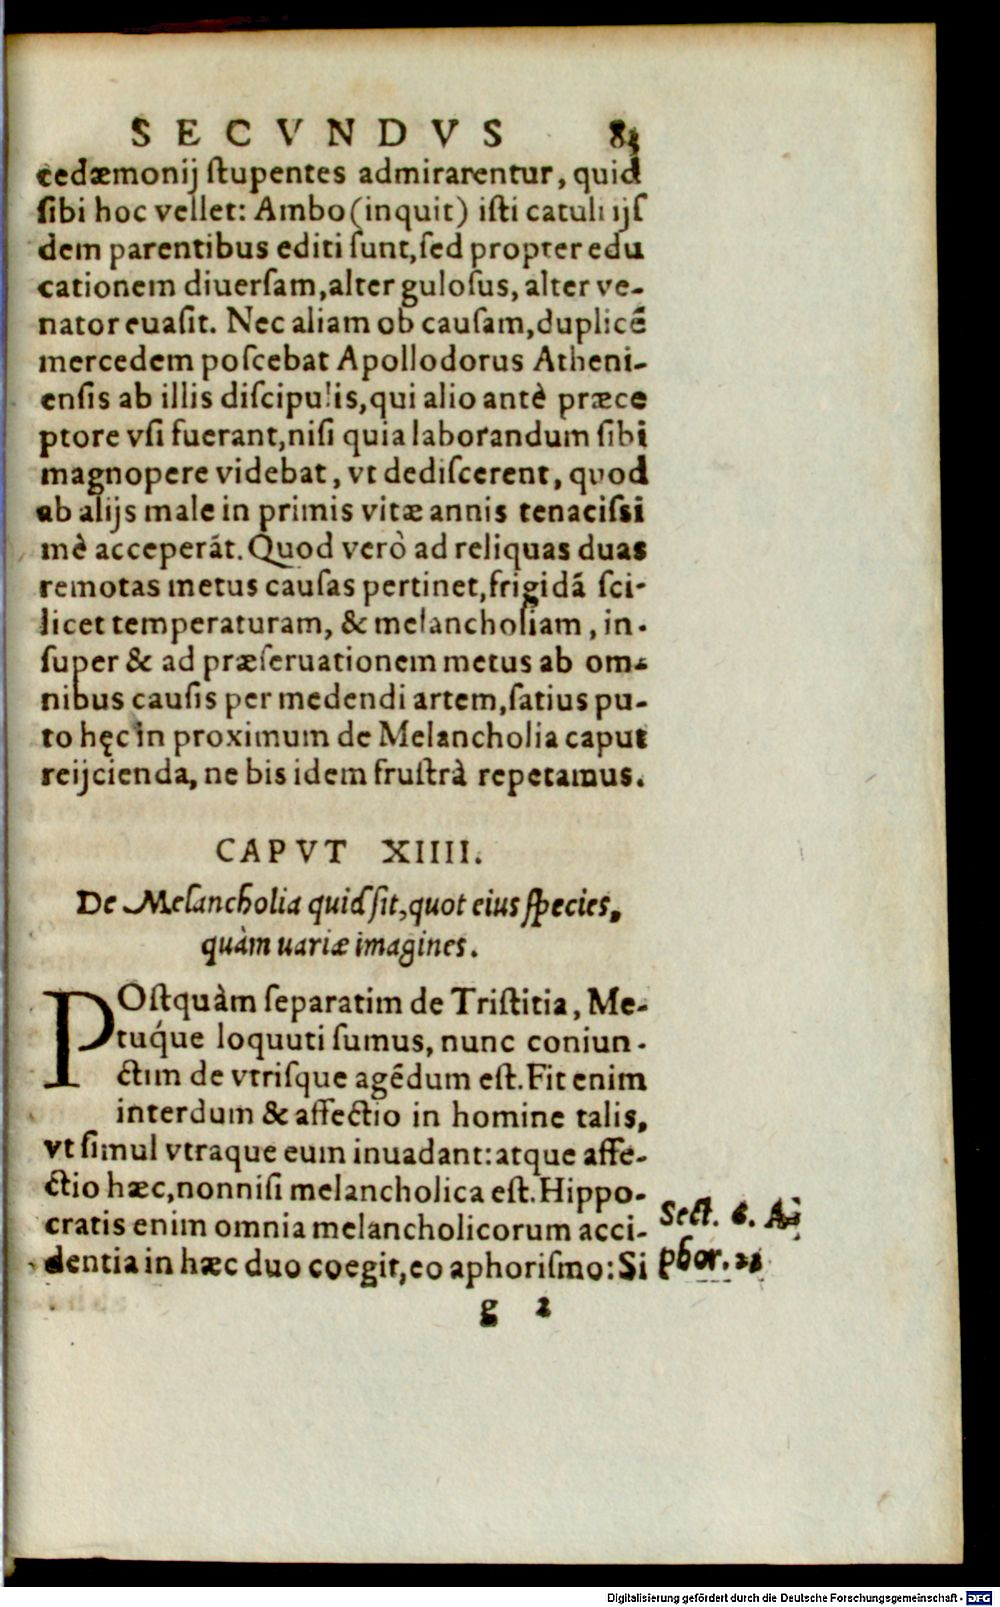 SECVNDVS 83
cedæmonij ſtupentes admirarentur, quid
ſibi hoc vellet: Ambo (inquit) iſti catuli ijſ
dem parentibus editi ſunt, ſed propter edu
cationem diuerſam, alter guloſus, alter ve-
nator euaſit. Nec aliam ob cauſam, duplicẽ
mercedem poſcebat Apollodorus Atheni-
enſis ab illis diſcipulis, qui alio antè præce
ptore vſi fuerant, niſi quia laborandum ſibi
magnopere videbat, vt dediſcerent, quod
ab alijs male in primis vitæ annis tenaciſsi
mè acceperãt. Quod verò ad reliquas duas
remotas metus cauſas pertinet, frigidã ſci-
licet temperaturam, & melancholiam, in-
ſuper & ad præſeruationem metus ab om-
nibus cauſis per medendi artem, ſatius pu-
to hęc in proximum de Melancholia caput
reijcienda, ne bis idem fruſtrà repetamus.
CAPVT XIIII.
De Melancholia quid ſit, quot eius ſpecies,
quàm uariæ imagines.
POſtquàm ſeparatim de Triſtitia, Me-
tuq́ue loquuti ſumus, nunc coniun-
ctim de vtriſque agẽdum eſt. Fit enim
interdum & affectio in homine talis,
vt ſimul vtraque eum inuadant: atque affe-
ctio hæc, nonniſi melancholica eſt. Hippo-
cratis enim omnia melancholicorum acci-
dentia in hæc duo coegit, eo aphoriſmo: Si
Sect. 6. A-
phor.
g 2
Digitalisierung gefördert durch die Deutsche Forschungsgemeinschaft - DFG